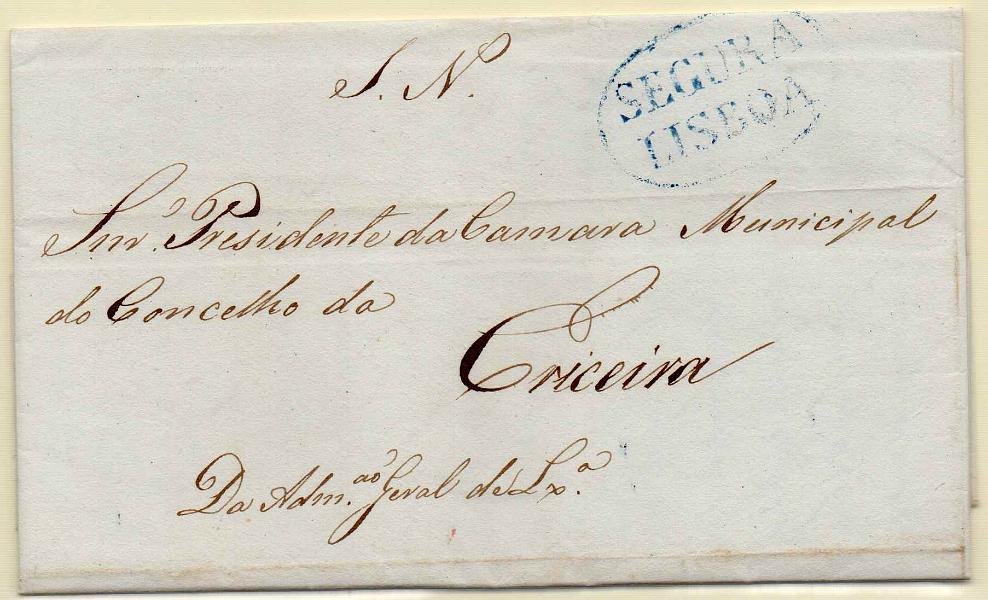 S. N.
SEGURA
LISBOA
Snr. Presidente da Camara Municipal
do Concelho da
Ericeira
Da Adm.ão Geral de Lx.ª